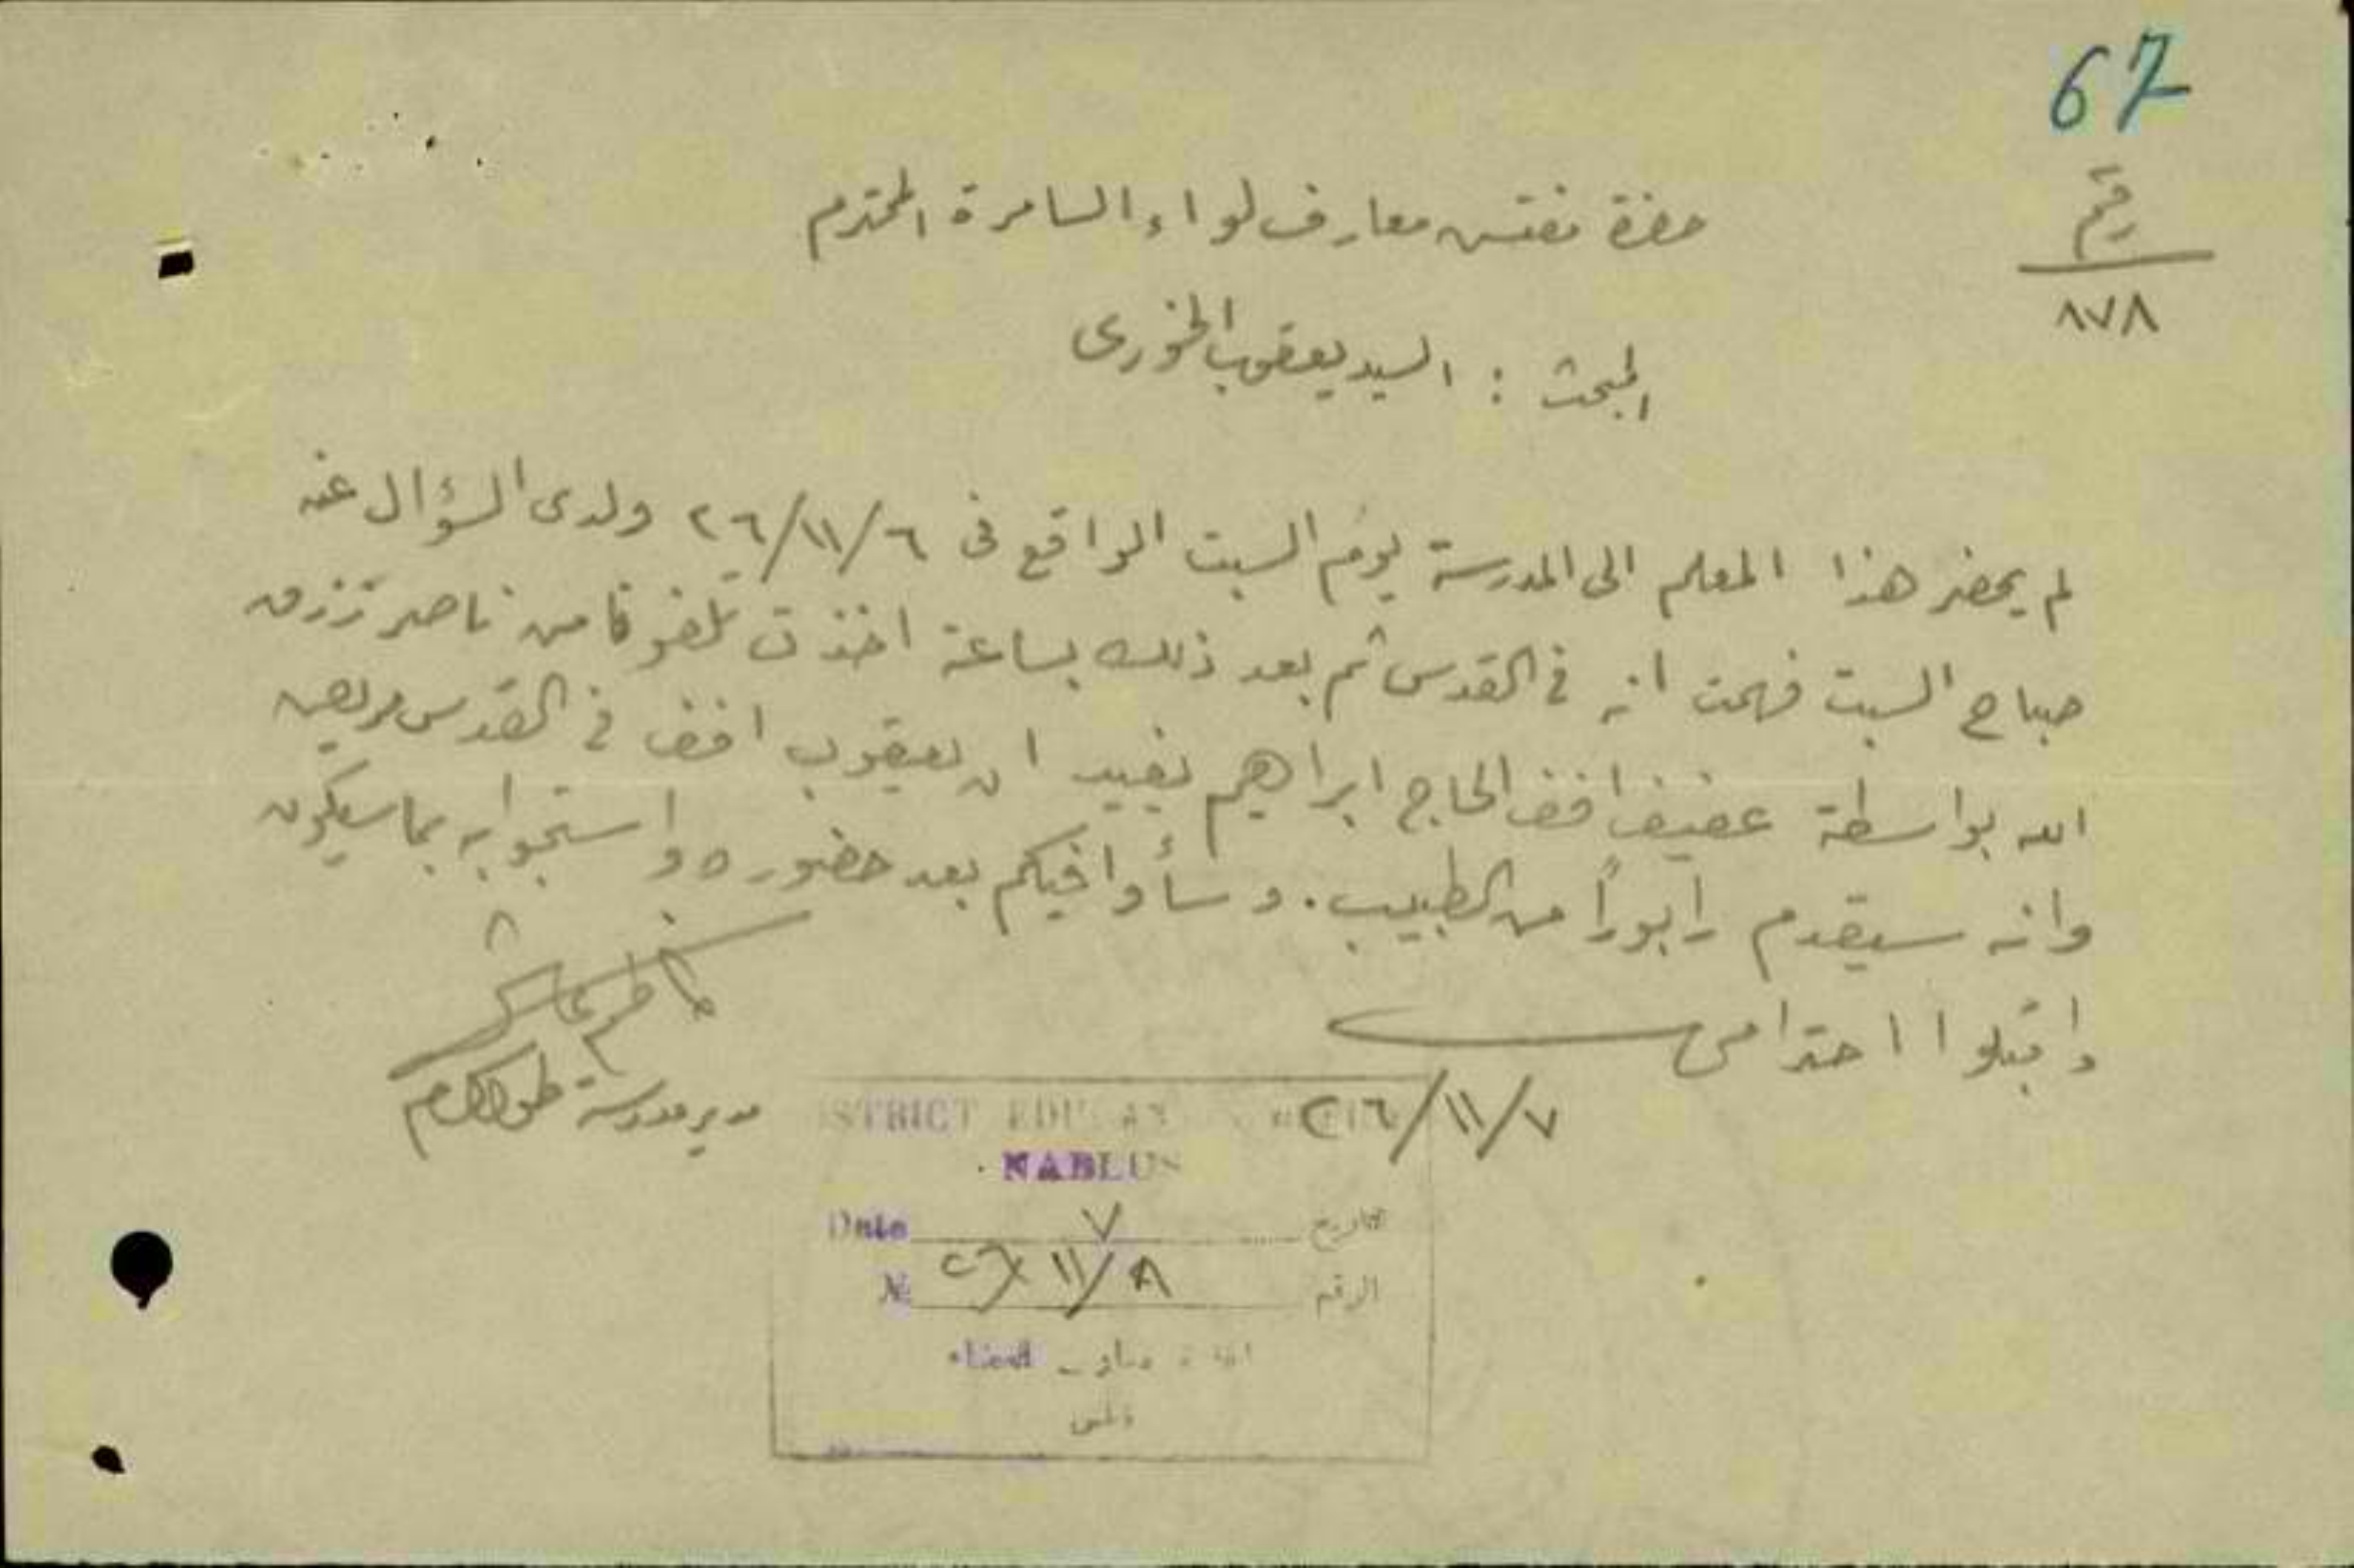 67
رقم
٨٧٨
حضرة مفتش معارف لواء السامرة المحترم
المبحث : السيد يعقوب الخورى
لم يحضر هذا المعلم الى المدرسة يوم السبت الواقع فى ٢٦/١١/٦ ولدى السؤال عنه
صباح السبت فهمت انه في القدس ثم بعد ذلك بساعة اخذت تلفونا من ناصر رزق
الله بواسطة عفيف افندي الحاج ابراهيم يفيد ان يعقوب افندي في القدس مريض
وانه سيقدم رابوراً من الطبيب. وسأوافيكم بعد حضوره واستجوابه بما سيكون
واقبلوا احترامى
٢٦/١١/٧
مدير مدرسة طولكرم
STRICT EDU
NABLUS
Date ٧ تاريخ
№ ٢٦/١١/٨ الرقم